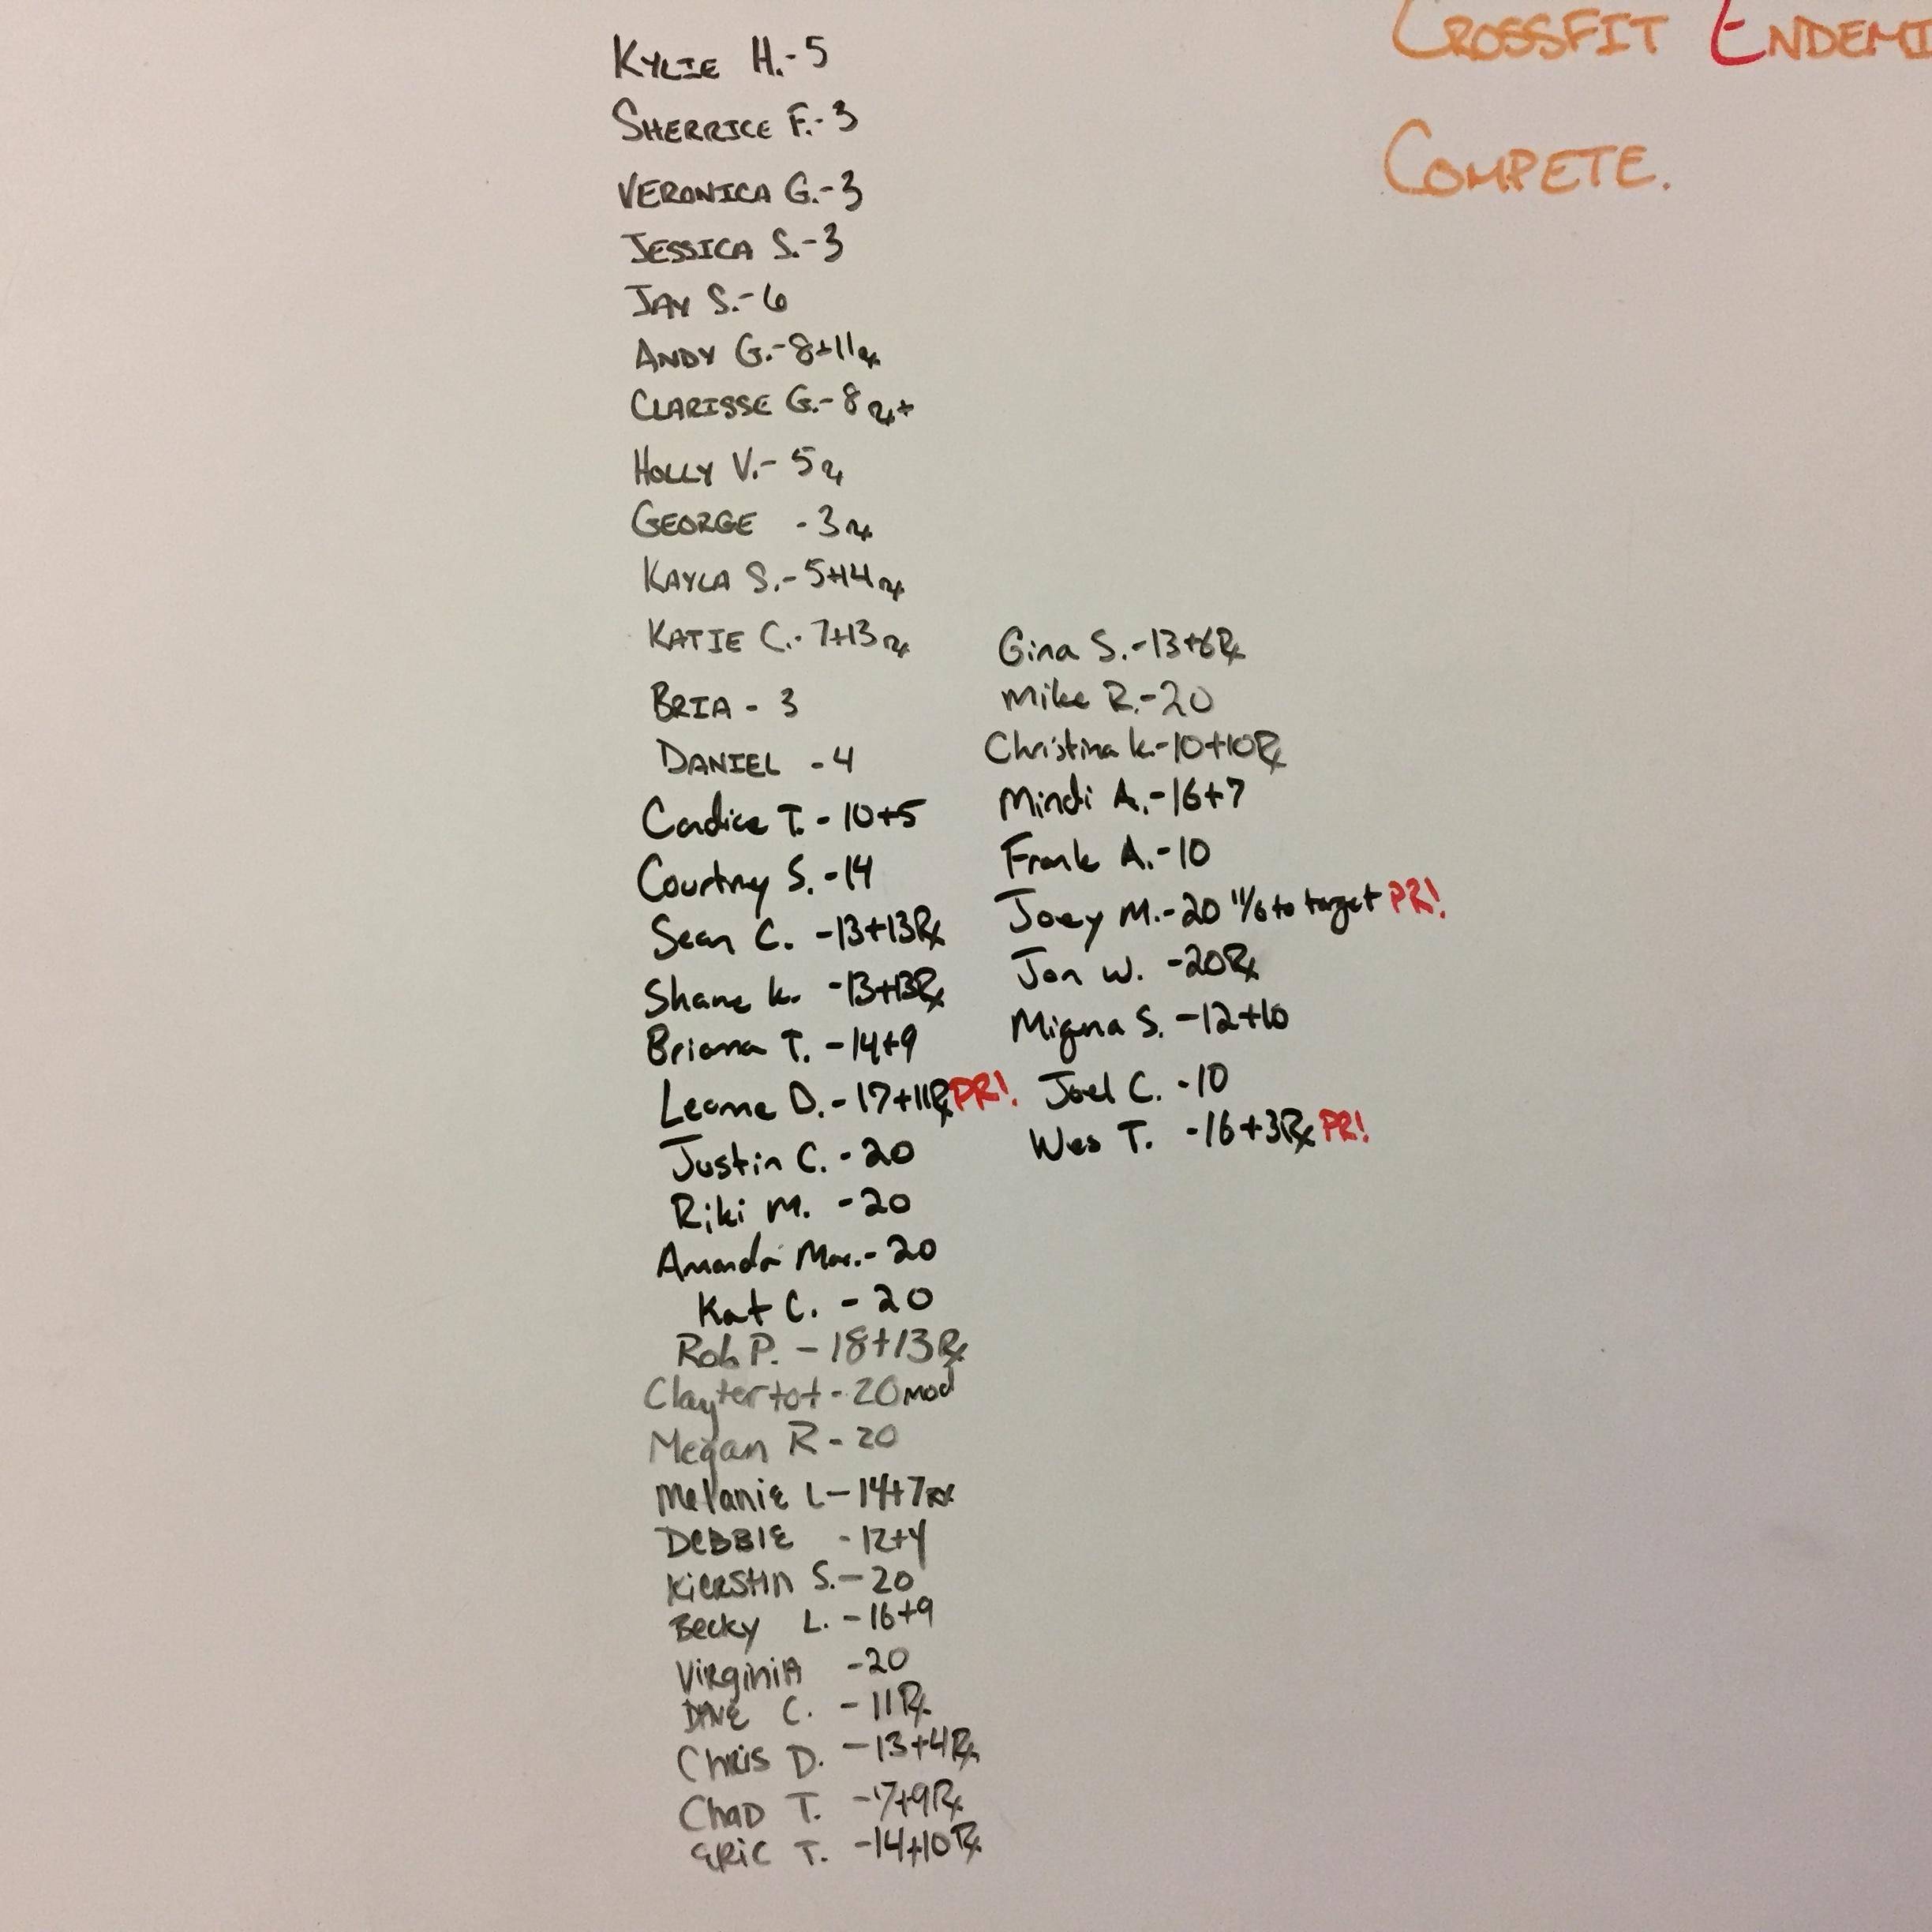 CROSSFIT ENDEMI
COMPETE.
KYLIE H.-5
SHERRICE F.-3
VERONICA G.-3
JESSICA S.-3
JAY S.-6
ANDY G.-8+11 Rx
CLARISSE G.-8 Rx+
HOLLY V.-5 Rx
GEORGE -3 Rx
KAYLA S.-5+14 Rx
KATIE C.-7+13 Rx
BRIA - 3
DANIEL - 4
Candice T. - 10+5
Courtney S. -14
Sean C. -13+13Rx
Shane K. -13+13Rx
Briana T. -14+9
Leanne D. -17+11Rx PR!
Justin C. -20
Riki M. -20
Amanda Mar. -20
Kat C. -20
Rob P. -18+13Rx
Claytertot -20 mod
Megan R - 20
Melanie L -14+7Rx
DEBBIE -12+4
Kierstin S. -20
Becky L. -16+9
VirginiA -20
DAVE C. -11Rx
Chris D. -13+4Rx
CHAD T. -17+9Rx
ERiC T. -14+10Rx
Gina S.-13+6Rx
Mike R.-20
Christina K-10+10Rx
Mindi A.-16+7
Frank A.-10
Joey M.-20 11/6 to target PR!
Jon W. -20Rx
Migna S. -12+10
Joel C. -10
Wes T. -16+3Rx PR!